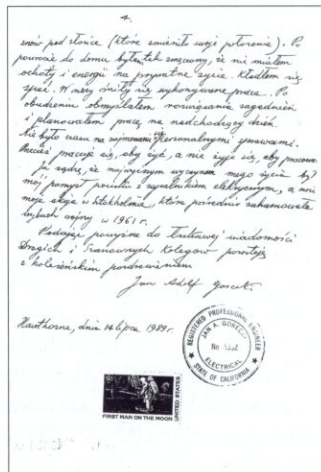 4.
znów pod słońce (które zmieniło swoje położenie). Po
powrocie do domu byłem tak zmęczony, że nie miałem
ochoty i energii na prywatne życie. Kładłem się
spać. W nocy śniły się wykonywane prace. Po
obudzeniu obmyślałem rozwiązania zagadnień
i planowałem pracę na nadchodzący dzień.
Nie było czasu na zajmowanie się personalnymi sprawami.
Przecież pracuje się, aby żyć, a nie żyje się, aby pracować.
Ja sądzę, że najwyższym wyczynem mego życia był
mój pomysł pocisku z zapalnikiem elektrycznym, a nie
moja akcja w Sztokholmie, która pośrednio zahamowała
wybuch wojny w 1961 r.
Podając powyższe do łaskawej wiadomości
Drogich i Szanownych Kolegów pozostaję
z koleżeńskim pozdrowieniem
Jan Adolf Gorecki
Hawthorne, dnia 14 lipca 1989 r.
REGISTERED PROFESSIONAL ENGINEER
JAN A. GORECKI
No
ELECTRICAL
STATE OF CALIFORNIA
UNITED STATES
FIRST MAN ON THE MOON